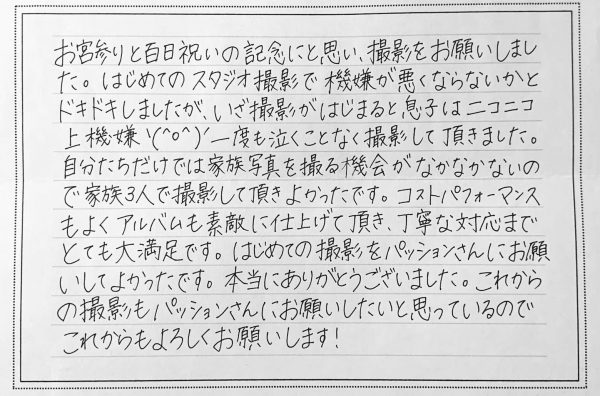 お宮参りと百日祝いの記念にと思い、撮影をお願いしまし
た。はじめてのスタジオ撮影で機嫌が悪くならないかと
ドキドキしましたが、いざ撮影がはじまると息子はニコニコ
上機嫌'\(^o^)/'一度も泣くことなく撮影して頂きました。
自分たちだけでは家族写真を撮る機会がなかなかないの
で家族3人で撮影して頂きよかったです。コストパフォーマンス
もよくアルバムも素敵に仕上げて頂き、丁寧な対応まで
とても大満足です。はじめての撮影をパッションさんにお願
いしてよかったです。本当にありがとうございました。これから
の撮影もパッションさんにお願いしたいと思っているので
これからもよろしくお願いします!